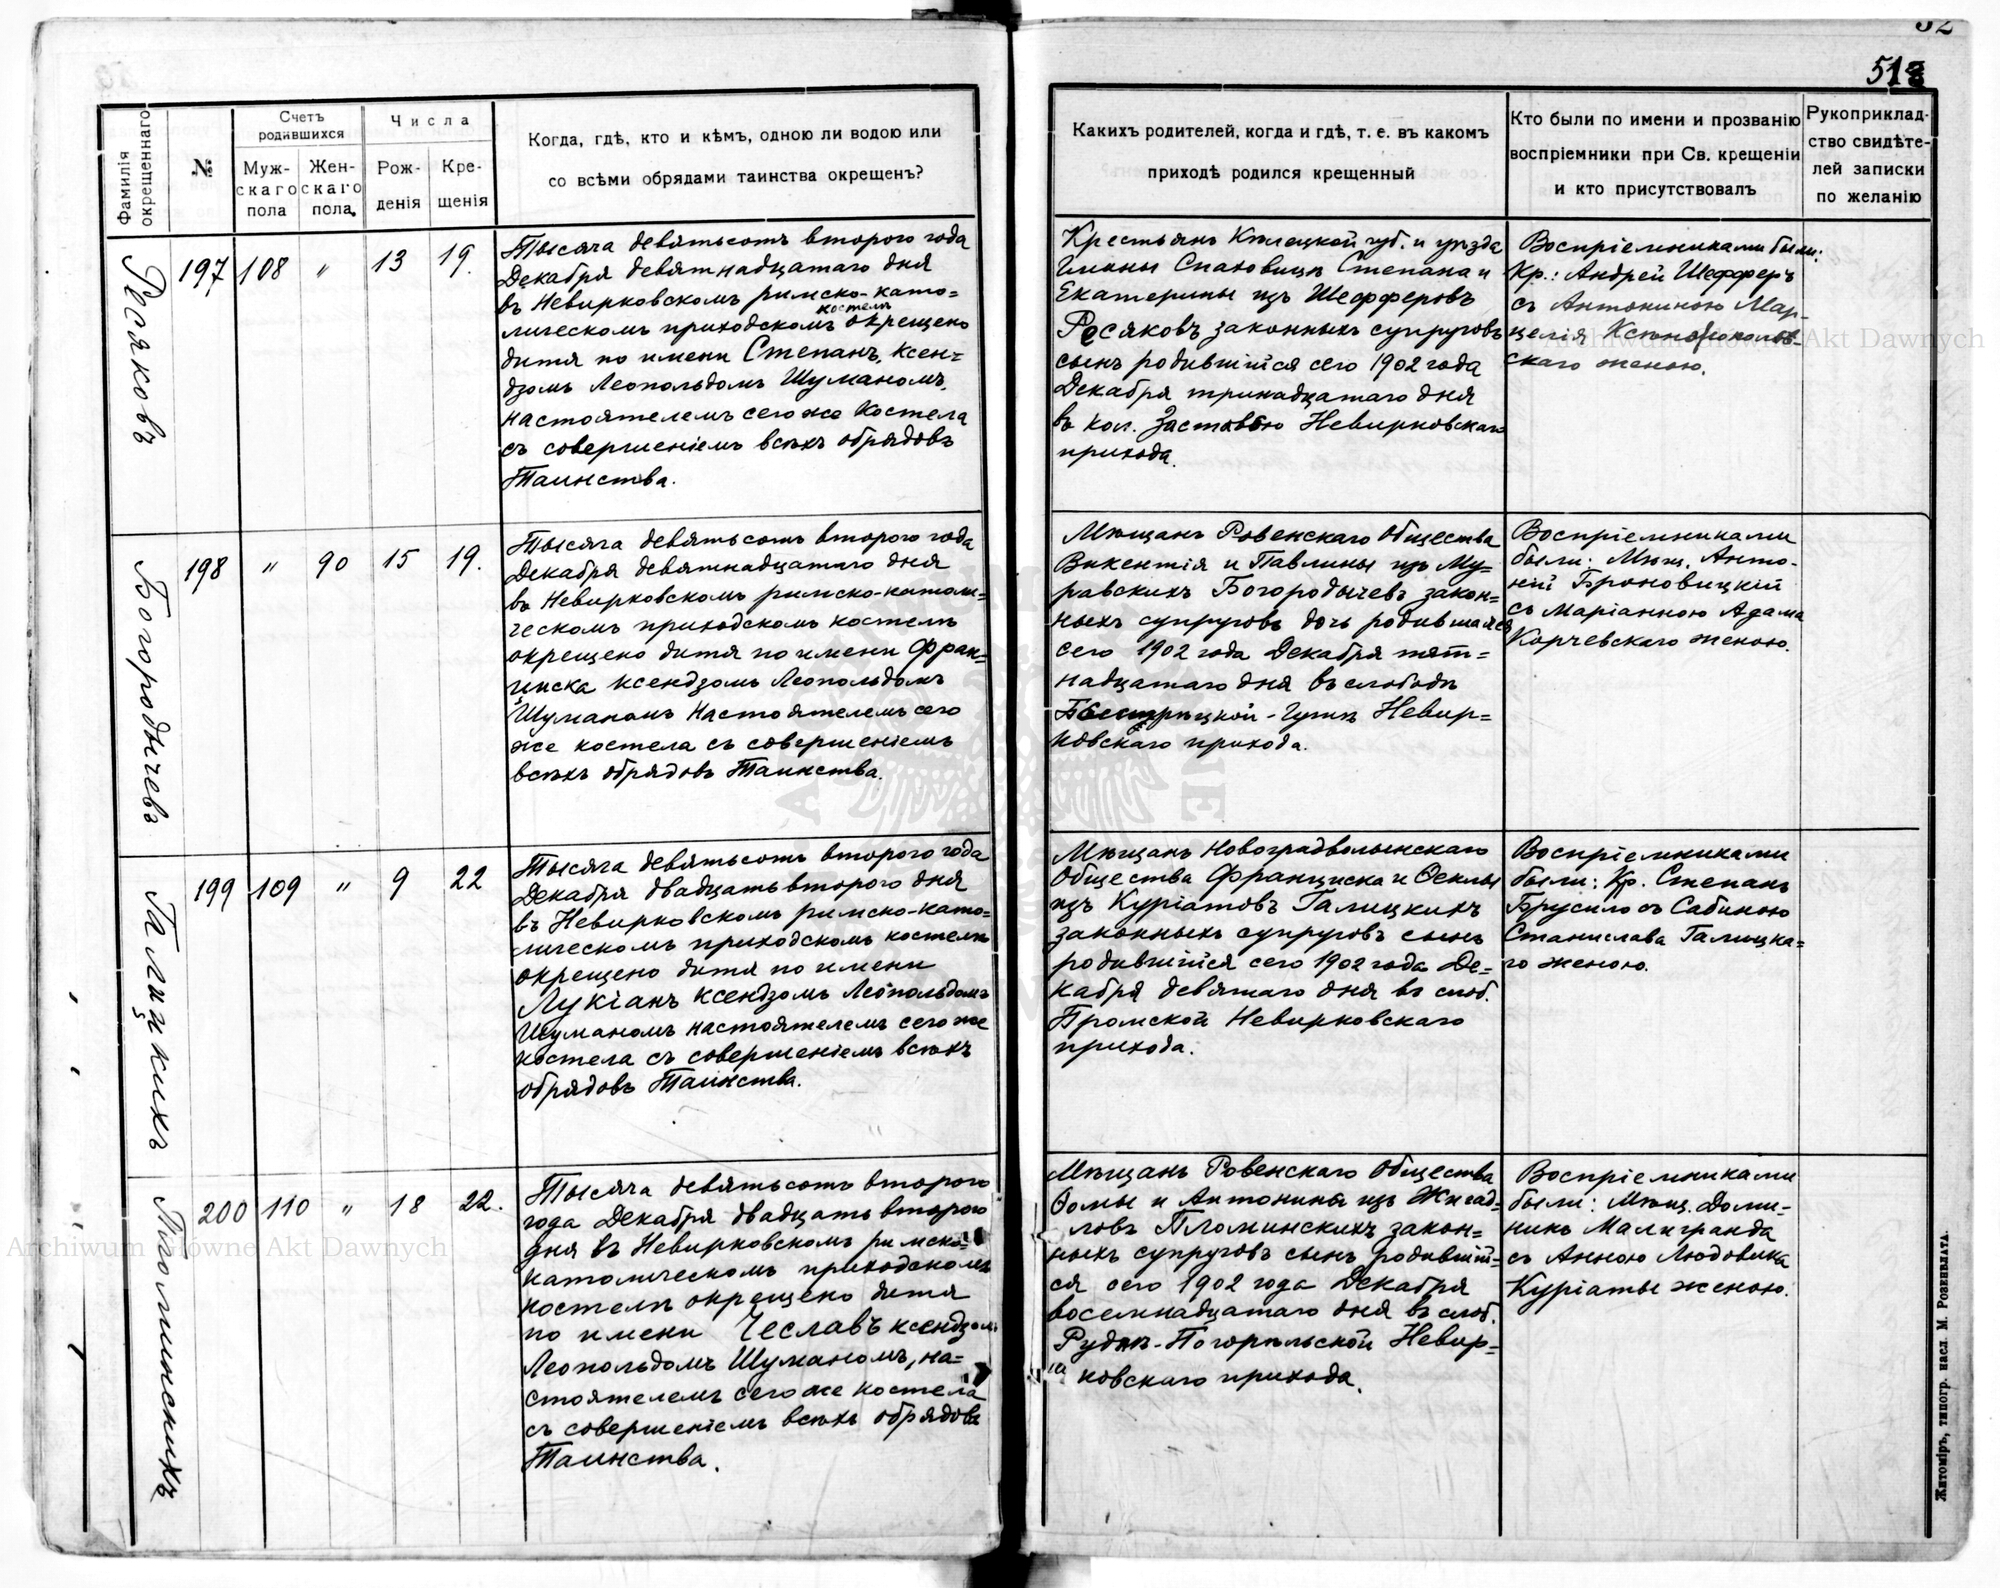 52
518
Фамилія окрещеннаго
№
Счетъ родившихся
Мужскаго пола
Женскаго пола
Числа
Рожденія
Крещенія
Когда, гдѣ, кто и кѣмъ, одною ли водою или
со всѣми обрядами таинства окрещенъ?
Какихъ родителей, когда и гдѣ, т. е. въ какомъ
приходѣ родился крещенный
Кто были по имени и прозванію
воспріемники при Св. крещеніи
и кто присутствовалъ
Рукоприклад-
ство свидѣте-
лей записки
по желанію
Росяковъ
197 108 " 13 19.
Тысяча девятьсотъ второго года
Декабря девятнадцатаго дня
въ Невирковскомъ римско-като-
лическомъ приходскомъ костелѣ окрещено
дитя по имени Степанъ, ксен-
дзомъ Леопольдомъ Шуманомъ,
настоятелемъ сего же костела
съ совершеніемъ всѣхъ обрядовъ
Таинства.
Крестьянъ Кѣлецкой губ. и уѣзда
Гмины Степана и
Екатерины изъ Шефферовъ
Росяковъ законныхъ супруговъ
сынъ родившійся сего 1902 года
Декабря тринадцатаго дня
въ кол. Заставью Невирковскаго
прихода.
Воспріемниками были:
Кр.: Андрей Шефферъ
съ Антониною Мар-
целія
скаго женою.
Богородичевъ
198 " 90 15 19.
Тысяча девятьсотъ второго года
Декабря девятнадцатаго дня
въ Невирковскомъ римско-католи-
ческомъ приходскомъ костелѣ
окрещено дитя по имени Фран-
циска ксендзомъ Леопольдомъ
Шуманомъ настоятелемъ сего
же костела съ совершеніемъ
всѣхъ обрядовъ Таинства.
Мѣщанъ Ровенскаго Общества
Викентія и Павлины изъ Му-
равскихъ Богородичевъ закон-
ныхъ супруговъ дочь родившаяся
сего 1902 года Декабря пят-
надцатаго дня въ слободѣ
Быстрицкой-Гутѣ Невир-
ковскаго прихода.
Воспріемниками
были: Мѣщ. Анто-
ній Броновицкій
съ Маріанною Адама
Корчевскаго женою.
Галицкихъ
199 109 " 9 22
Тысяча девятьсотъ второго года
Декабря двадцать второго дня
въ Невирковскомъ римско-като-
лическомъ приходскомъ костелѣ
окрещено дитя по имени
Лукіанъ ксендзомъ Леопольдомъ
Шуманомъ настоятелемъ сего же
костела съ совершеніемъ всѣхъ
обрядовъ Таинства.
Мѣщанъ Новоградволынскаго
Общества Франциска и Ѳеклы
изъ Куріатовъ Галицкихъ
законныхъ супруговъ сынъ
родившійся сего 1902 года Де-
кабря девятаго дня въ слоб.
Бромской Невирковскаго
прихода.
Воспріемниками
были: Кр. Степанъ
Брусило съ Сабиною
Станислава Галицка-
го женою.
Пломинскихъ
200 110 " 18 22.
Тысяча девятьсотъ второго
года Декабря двадцать второго
дня въ Невирковскомъ римско-
католическомъ приходскомъ
костелѣ окрещено дитя
по имени Чеславъ ксендзомъ
Леопольдомъ Шуманомъ, на-
стоятелемъ сего же костела
съ совершеніемъ всѣхъ обрядовъ
Таинства.
Мѣщанъ Ровенскаго Общества
Ѳомы и Антонины изъ Жигад-
ловъ Пломинскихъ закон-
ныхъ супруговъ сынъ родившій-
ся сего 1902 года Декабря
восемнадцатаго дня въ слоб.
Руднѣ-Погорѣльской Невир-
ковскаго прихода.
Воспріемниками
были: Мѣщ. Доми-
никъ Малигранда
съ Анною Людовика
Куріаты женою.
Житоміръ, типогр. насл. М. Розенблата.
Archiwum Główne Akt Dawnych
Archiwum Główne Akt Dawnych